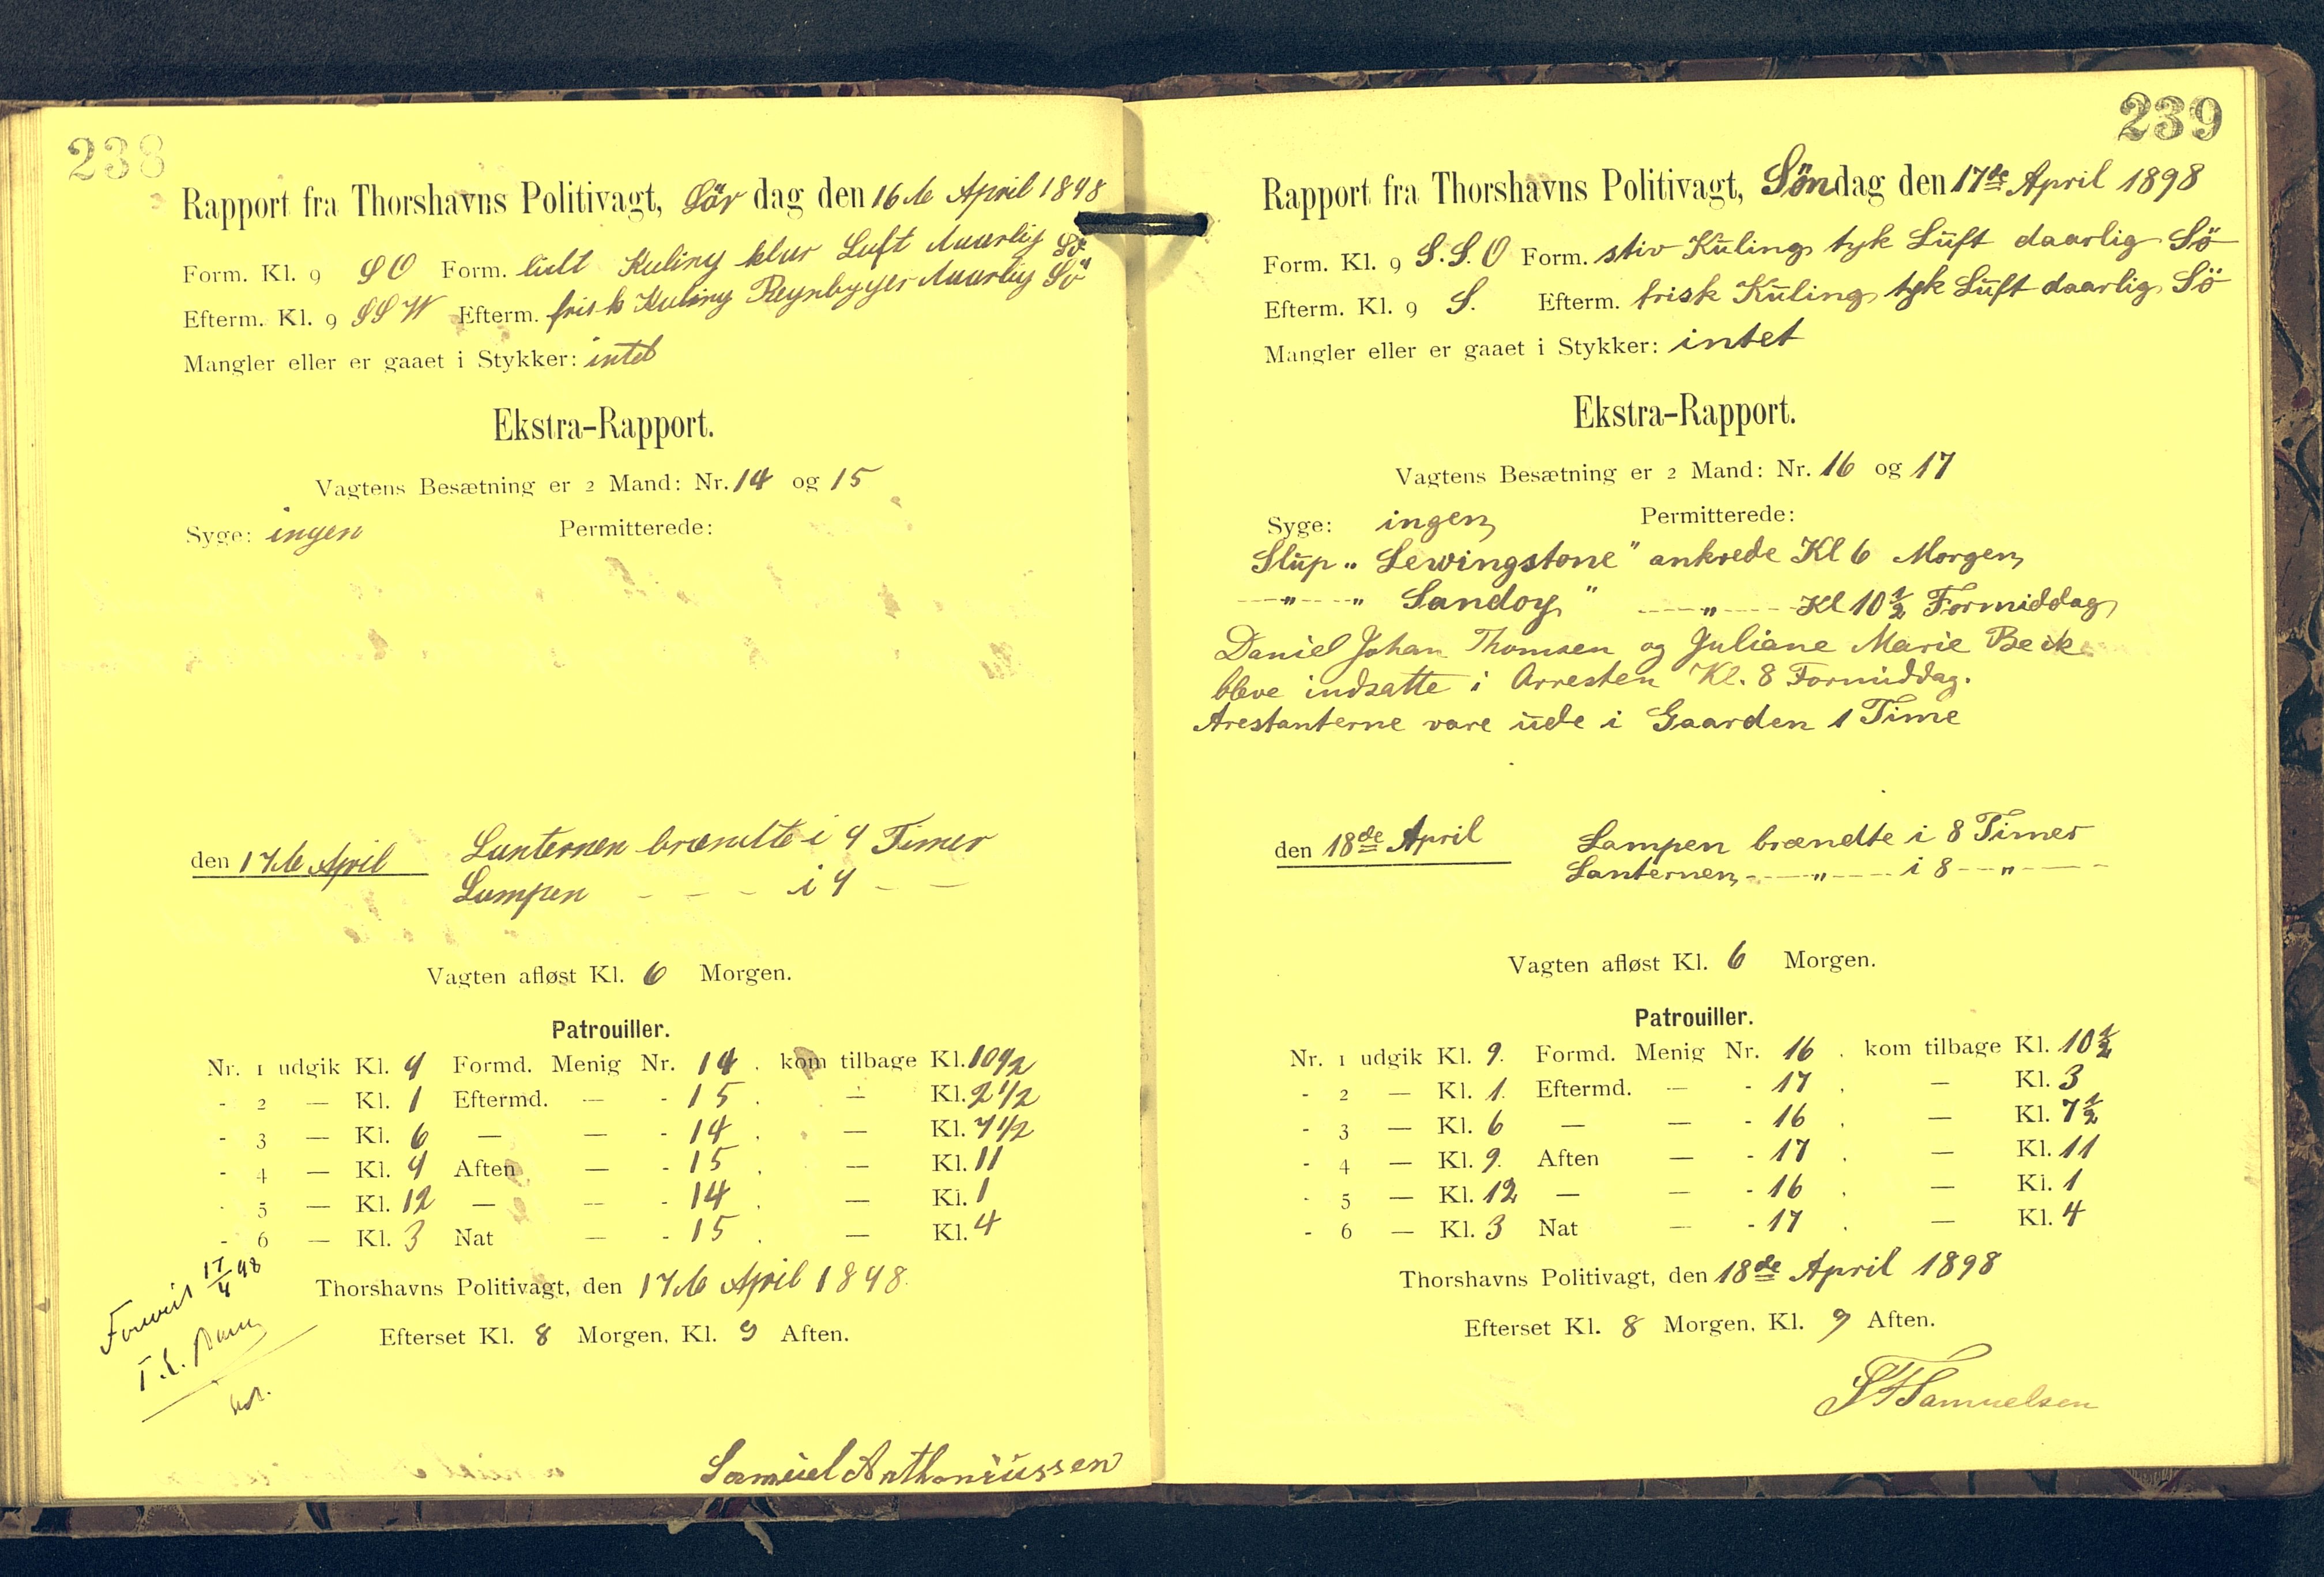 238
Rapport fra Thorshavns Politivagt, Lör dag den 16de April 1898
Form. Kl. 9 SO Form. lidt Kuling klar Luft daarlig Sö
Efterm. Kl. 9 SSW Efterm. frisk Kuling Regnbyger daarlig Sö
Mangler eller er gaaet i Stykker: intet
Ekstra-Rapport.
Vagtens Besætning er 2 Mand: Nr. 14 og 15
Syge: ingen Permitterede:
den 17de April Lanternen brændte i 9 Timer
Lampen - - - i 9 - -
Vagten afløst Kl. 6 Morgen.
Patrouiller.
Nr. 1 udgik Kl. 9 Formd. Menig Nr. 14 . kom tilbage Kl. 10 1/2
- 2 — Kl. 1 Eftermd. — - 15 . — Kl. 2 1/2
- 3 — Kl. 6 — — - 14 . — Kl. 7 1/2
- 4 — Kl. 9 Aften — - 15 . — Kl. 11
- 5 — Kl. 12 — — - 14 . — Kl. 1
- 6 — Kl. 3 Nat — - 15 . — Kl. 4
Thorshavns Politivagt, den 17de April 1898.
Efterset Kl. 8 Morgen, Kl. 9 Aften.
17/4 98
Samuel Anthoniussen
239
Rapport fra Thorshavns Politivagt, Söndag den 17de April 1898
Form. Kl. 9 S.S.O Form. stiv Kuling tyk Luft daarlig Sö
Efterm. Kl. 9 S. Efterm. frisk Kuling tyk Luft daarlig Sö
Mangler eller er gaaet i Stykker: intet
Ekstra-Rapport.
Vagtens Besætning er 2 Mand: Nr. 16 og 17
Syge: ingen Permitterede:
Slup „ Lewingstone" ankrede Kl 6 Morgen
—„—„ Sandoy" —„— Kl 10 1/2 Formiddag
Daniel Johan Thomsen og Juliane Marie Beck
bleve indsatte i Arresten Kl. 8 Formiddag.
Arestanterne vare ude i Gaarden 1 Time
den 18de April Lampen brændte i 8 Timer
Lanternen —„— i 8 —„—
Vagten afløst Kl. 6 Morgen.
Patrouiller.
Nr. 1 udgik Kl. 9. Formd. Menig Nr. 16 . kom tilbage Kl. 10 1/2
- 2 — Kl. 1. Eftermd. — - 17 . — Kl. 3
- 3 — Kl. 6 — — - 16 . — Kl. 7 1/2
- 4 — Kl. 9. Aften — - 17 . — Kl. 11
- 5 — Kl. 12 — — - 16 . — Kl. 1
- 6 — Kl. 3 Nat — - 17 . — Kl. 4
Thorshavns Politivagt, den 18de April 1898
Efterset Kl. 8 Morgen, Kl. 9 Aften.
Samuelsen